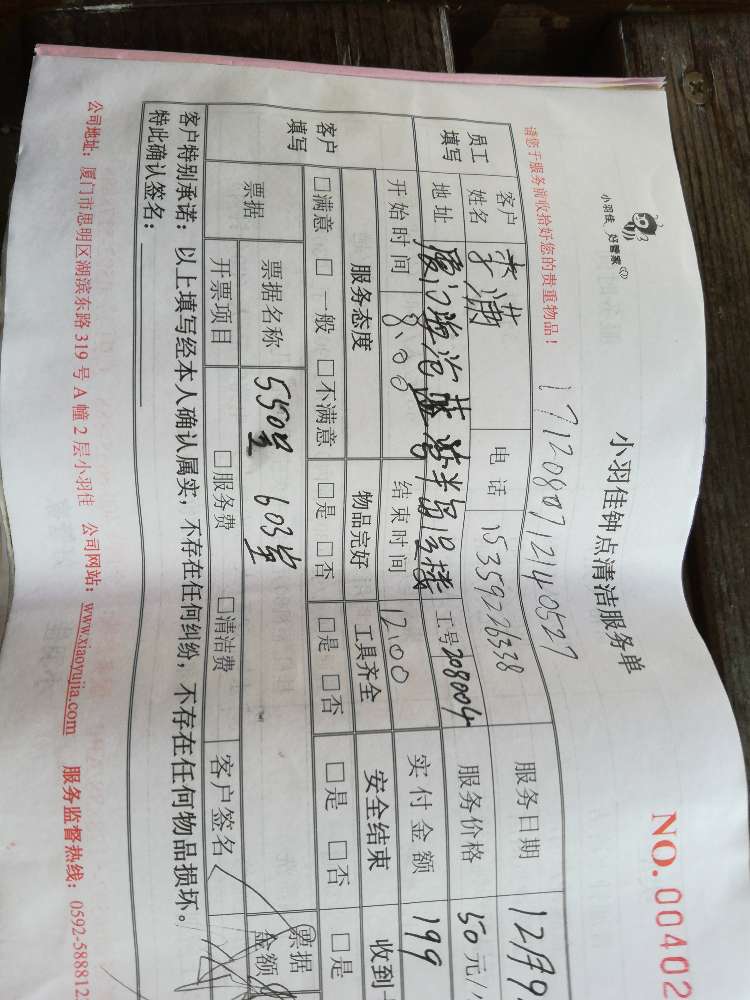 小羽佳 好管家
小羽佳钟点清洁服务单
NO.00402
17120807121140527
请您于服务前收拾好您的贵重物品!
员工填写 客户姓名 李满 电话 15359226338 服务日期 12月9
地址 厦门海沧蓝湾半岛 工号 208004 服务价格 50元/
开始时间 8:00 结束时间 12:00 实付金额 199
客户填写 服务态度 物品完好 工具齐全 安全结束 收到
□满意 □一般 □不满意 □是 □否 □是 □否 □是 □否 □是
票据 票据名称 550室 603室 票据金额
开票项目 □服务费 □清洁费 客户签名
客户特别承诺: 以上填写经本人确认属实,不存在任何纠纷,不存在任何物品损坏。
特此确认签名:
公司地址: 厦门市思明区湖滨东路 319 号 A 幢 2 层小羽佳 公司网站: www.xiaoyujia.com 服务监督热线: 0592-588812